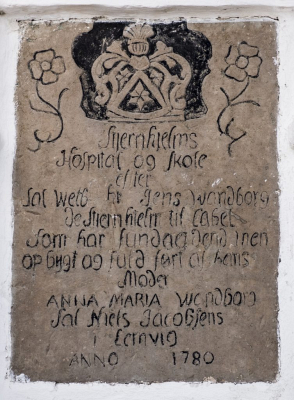 Stiernhielms
Hospital og skole
efter
Sal Welb hr Jens Wandborg
de Stiernhielm til Cabel
Som har fundaderd Men
opbygt og fuld ført af hans
Moder
ANNA MARIA Wandborg
Sal Niels Jacobsens
i Lemvig
ANNO 1780